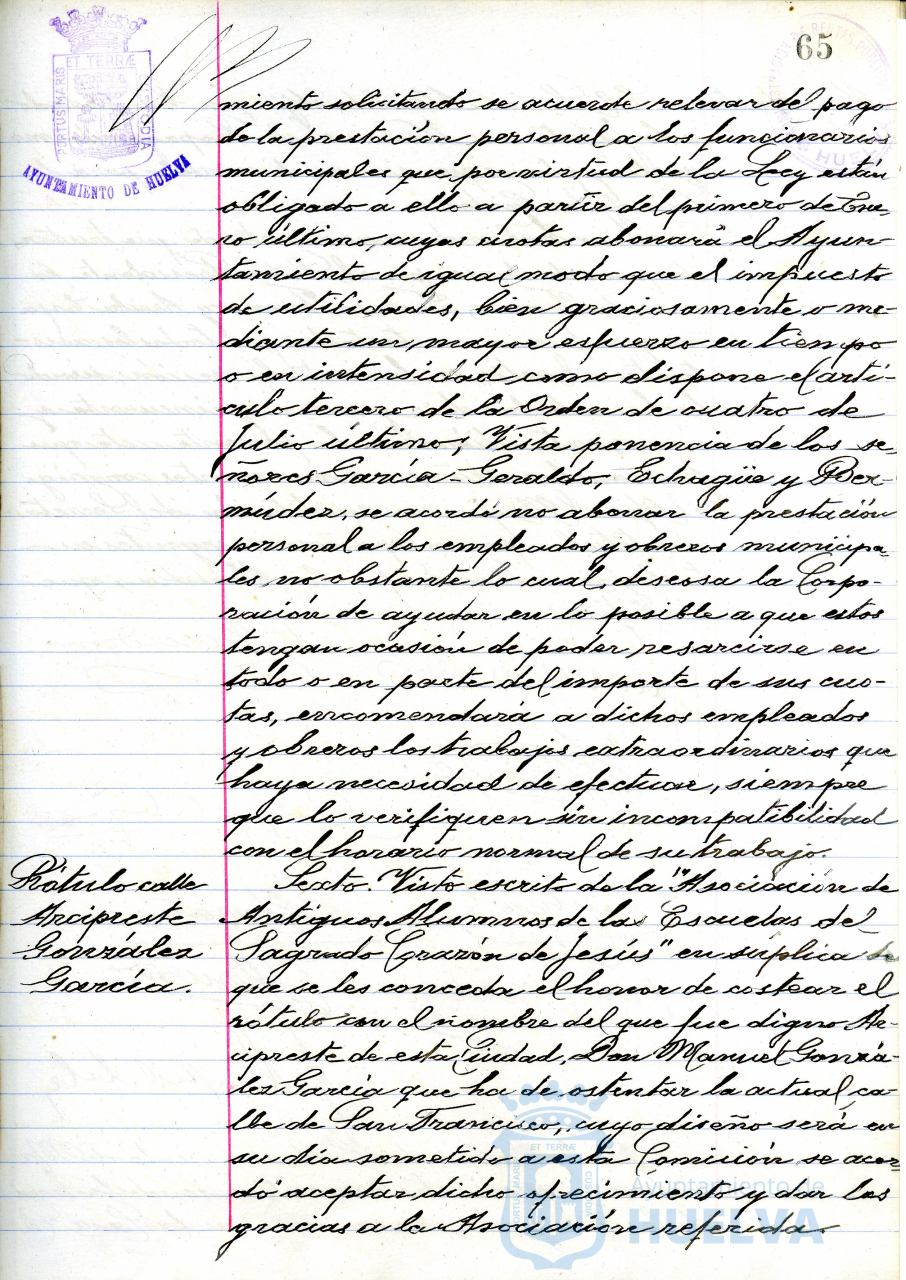 65
ET TERRÆ
PORTUS MARIS
CUSTODIA
AYUNTAMIENTO DE HUELVA
miento solicitando se acuerde relevar del pago
de la prestación personal a los funcionarios
municipales que, por virtud de la Ley están
obligado a ello a partir del primero de Ene-
ro último, cuyas cuotas abonará el Ayun-
tamiento de igual modo que el impuesto
de utilidades, bien graciosamente o me-
diante un mayor esfuerzo en tiempo
o en intensidad como dispone el artí-
culo tercero de la Orden de cuatro de
Julio último; Vista ponencia de los se-
ñores García-Geraldo, Echagüe y Ber-
múdez, se acordó no abonar la prestación
personal a los empleados y obreros municipa-
les no obstante lo cual, deseosa la Corpo-
ración de ayudar en lo posible a que estos
tengan ocasión de poder resarcirse en
todo o en parte del importe de sus cuo-
tas, encomendará a dichos empleados
y obreros los trabajos extraordinarios que
haya necesidad de efectuar, siempre
que lo verifiquen sin incompatibilidad
con el horario normal de su trabajo.
Rótulo calle
Arcipreste
González
García.
Sexto. Visto escrito de la "Asociación de
Antiguos Alumnos de las Escuelas del
Sagrado Corazón de Jesús" en súplica de
que se les conceda el honor de costear el
rótulo con el nombre del que fue digno Ar-
cipreste de esta Ciudad, Don Manuel Gonzá-
lez García que ha de ostentar la actual ca-
lle de San Francisco, cuyo diseño será en
su día sometido a esta Comisión, se acor-
dó aceptar dicho ofrecimiento y dar las
gracias a la Asociación referida.
Ayuntamiento de
HUELVA